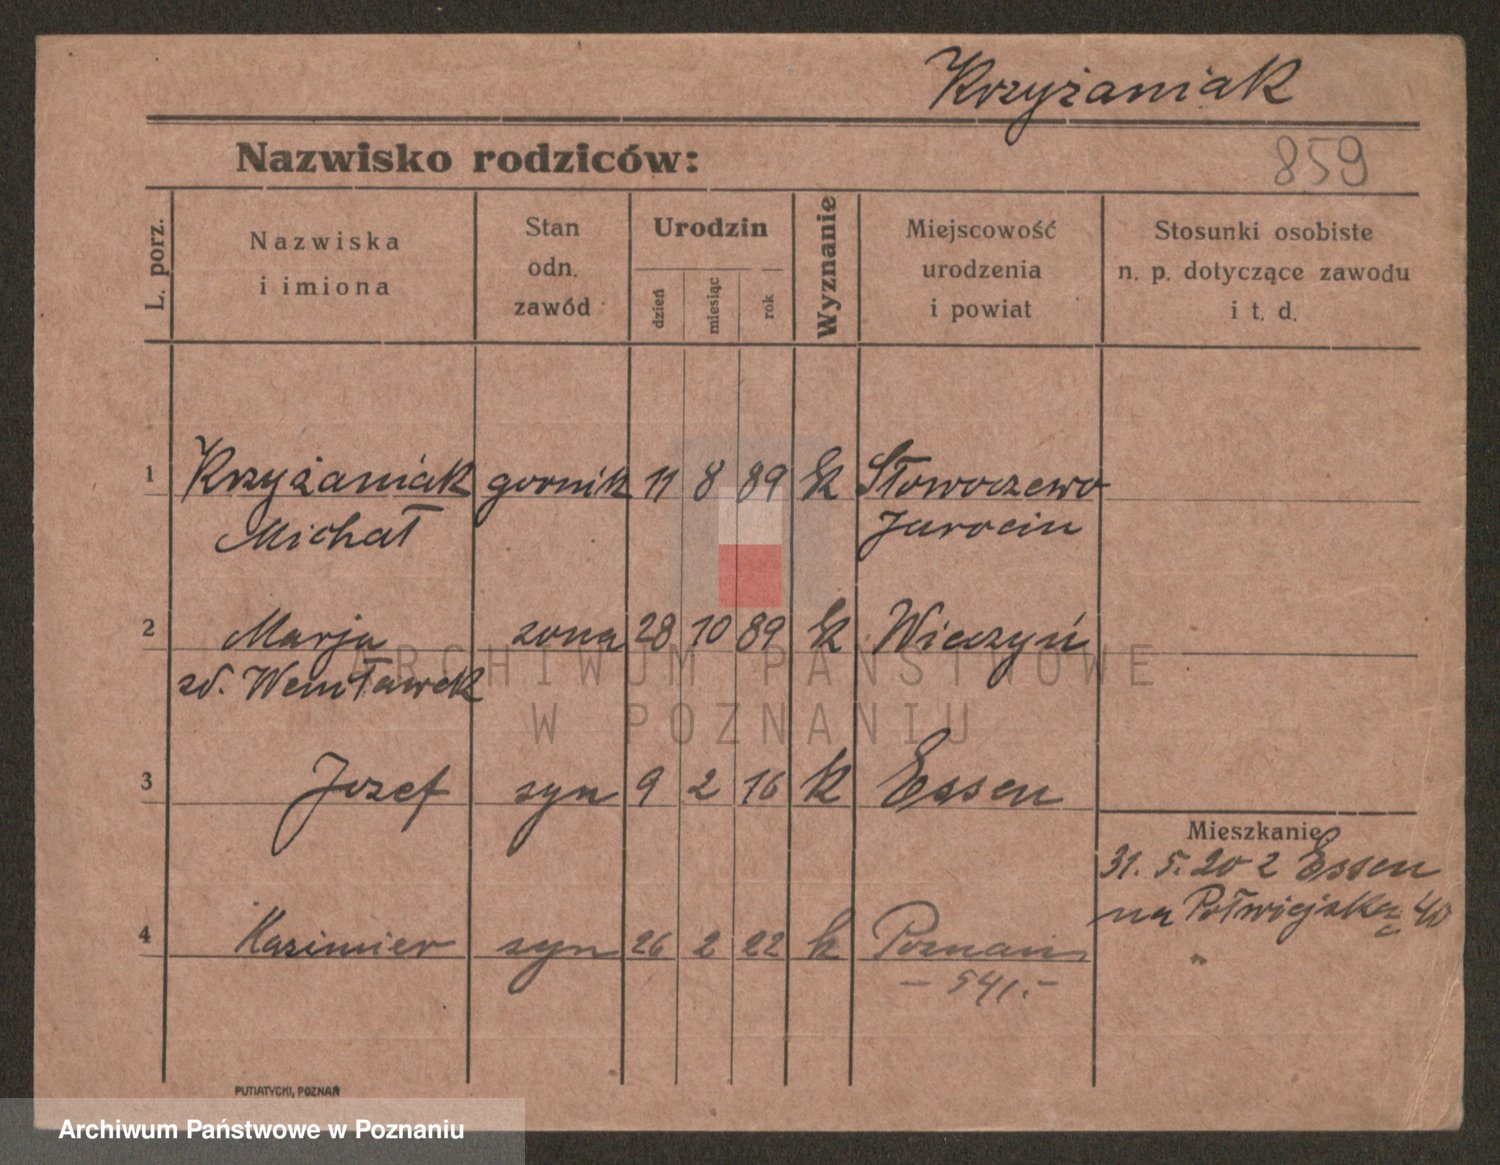 Krzyżaniak
Nazwisko rodziców:
859
L. porz.
Nazwiska
i imiona
Stan
odn.
zawód
Urodzin
dzień
miesiąc
rok
Wyznanie
Miejscowość
urodzenia
i powiat
Stosunki osobiste
n. p. dotyczące zawodu
i t. d.
1 Krzyżaniak gornik 11 8 89 k Słowoszewo
Michał Jarocin
2 Marja zona 28 10 89 k Wieczyń
zd. Wemławek
3 Jozef syn 9 2 16 k Essen
Mieszkanie
31. 5. 20 z Essen
na Półwiejską 40
4 Kazimier syn 26 2 22 k Poznań
"
– 541.–
ARCHIWUM PAŃSTWOWE
W POZNANIU
PUTIATYCKI, POZNAŃ
Archiwum Państwowe w Poznaniu